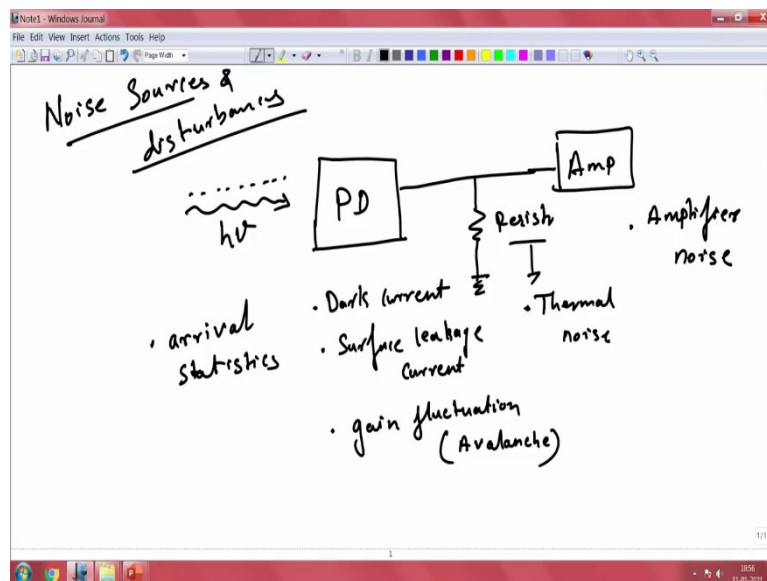 Note1 - Windows Journal
File Edit View Insert Actions Tools Help
Page Width
B I
Noise Sources &
disturbances
hν
PD
Amp
Resistr
. Amplifier
noise
. arrival
statistics
. Dark current
. Surface leakage
current
. gain fluctuation
(Avalanche)
. Thermal
noise
1
1/1
18:56
11-01-2021